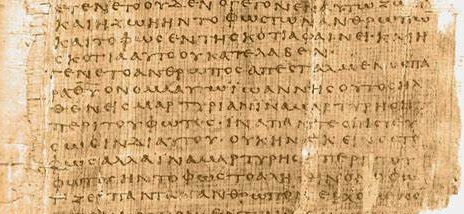 ΚΑΙΗΖΩΗΗΝΤΟΦΩϹΤΩΝΑΝΘΡΩΠΩ
ΚΑΙΤΟΦΩϹΕΝΤΗϹΚΟΤΙΑΦΑΙΝΕΙΚΑΙΗ
ϹΚΟΤΙΑΑΥΤΟΟΥΚΑΤΕΛΑΒΕΝ
ΕΓΕΝΕΤΟΑΝΘΡΩΠΟϹΑΠΕϹΤΑΛΜΕΝΟϹΠΑ
ΡΑΘΥΟΝΟΜΑΑΥΤΩΙΩΑΝΝΗϹΟΥΤΟϹΗΛ
ΘΕΝΕΙϹΜΑΡΤΥΡΙΑΝΙΝΑΜΑΡΤΥΡΗϹΗ
ΠΕΡΙΤΟΥΦΩΤΟϹΙΝΑΠΑΝΤΕϹΠΙϹΤΕΥ
ϹΩϹΙΝΔΙΑΥΤΟΥΟΥΚΗΝΕΚΕΙΝΟϹΤΟ
ΦΩϹΑΛΛΑΙΝΑΜΑΡΤΥΡΗϹΗΠΕΡΙΤΟΥ
ΦΩΤΟϹΗΝΤΟΦΩϹΤΟΑΛΗΘΙΝΟΝΟΦΩ
ΤΙΖΕΙΠΑΝΤΑΑΝΘΡΩΠΟΝΕΡΧΟΜΕΝΟ